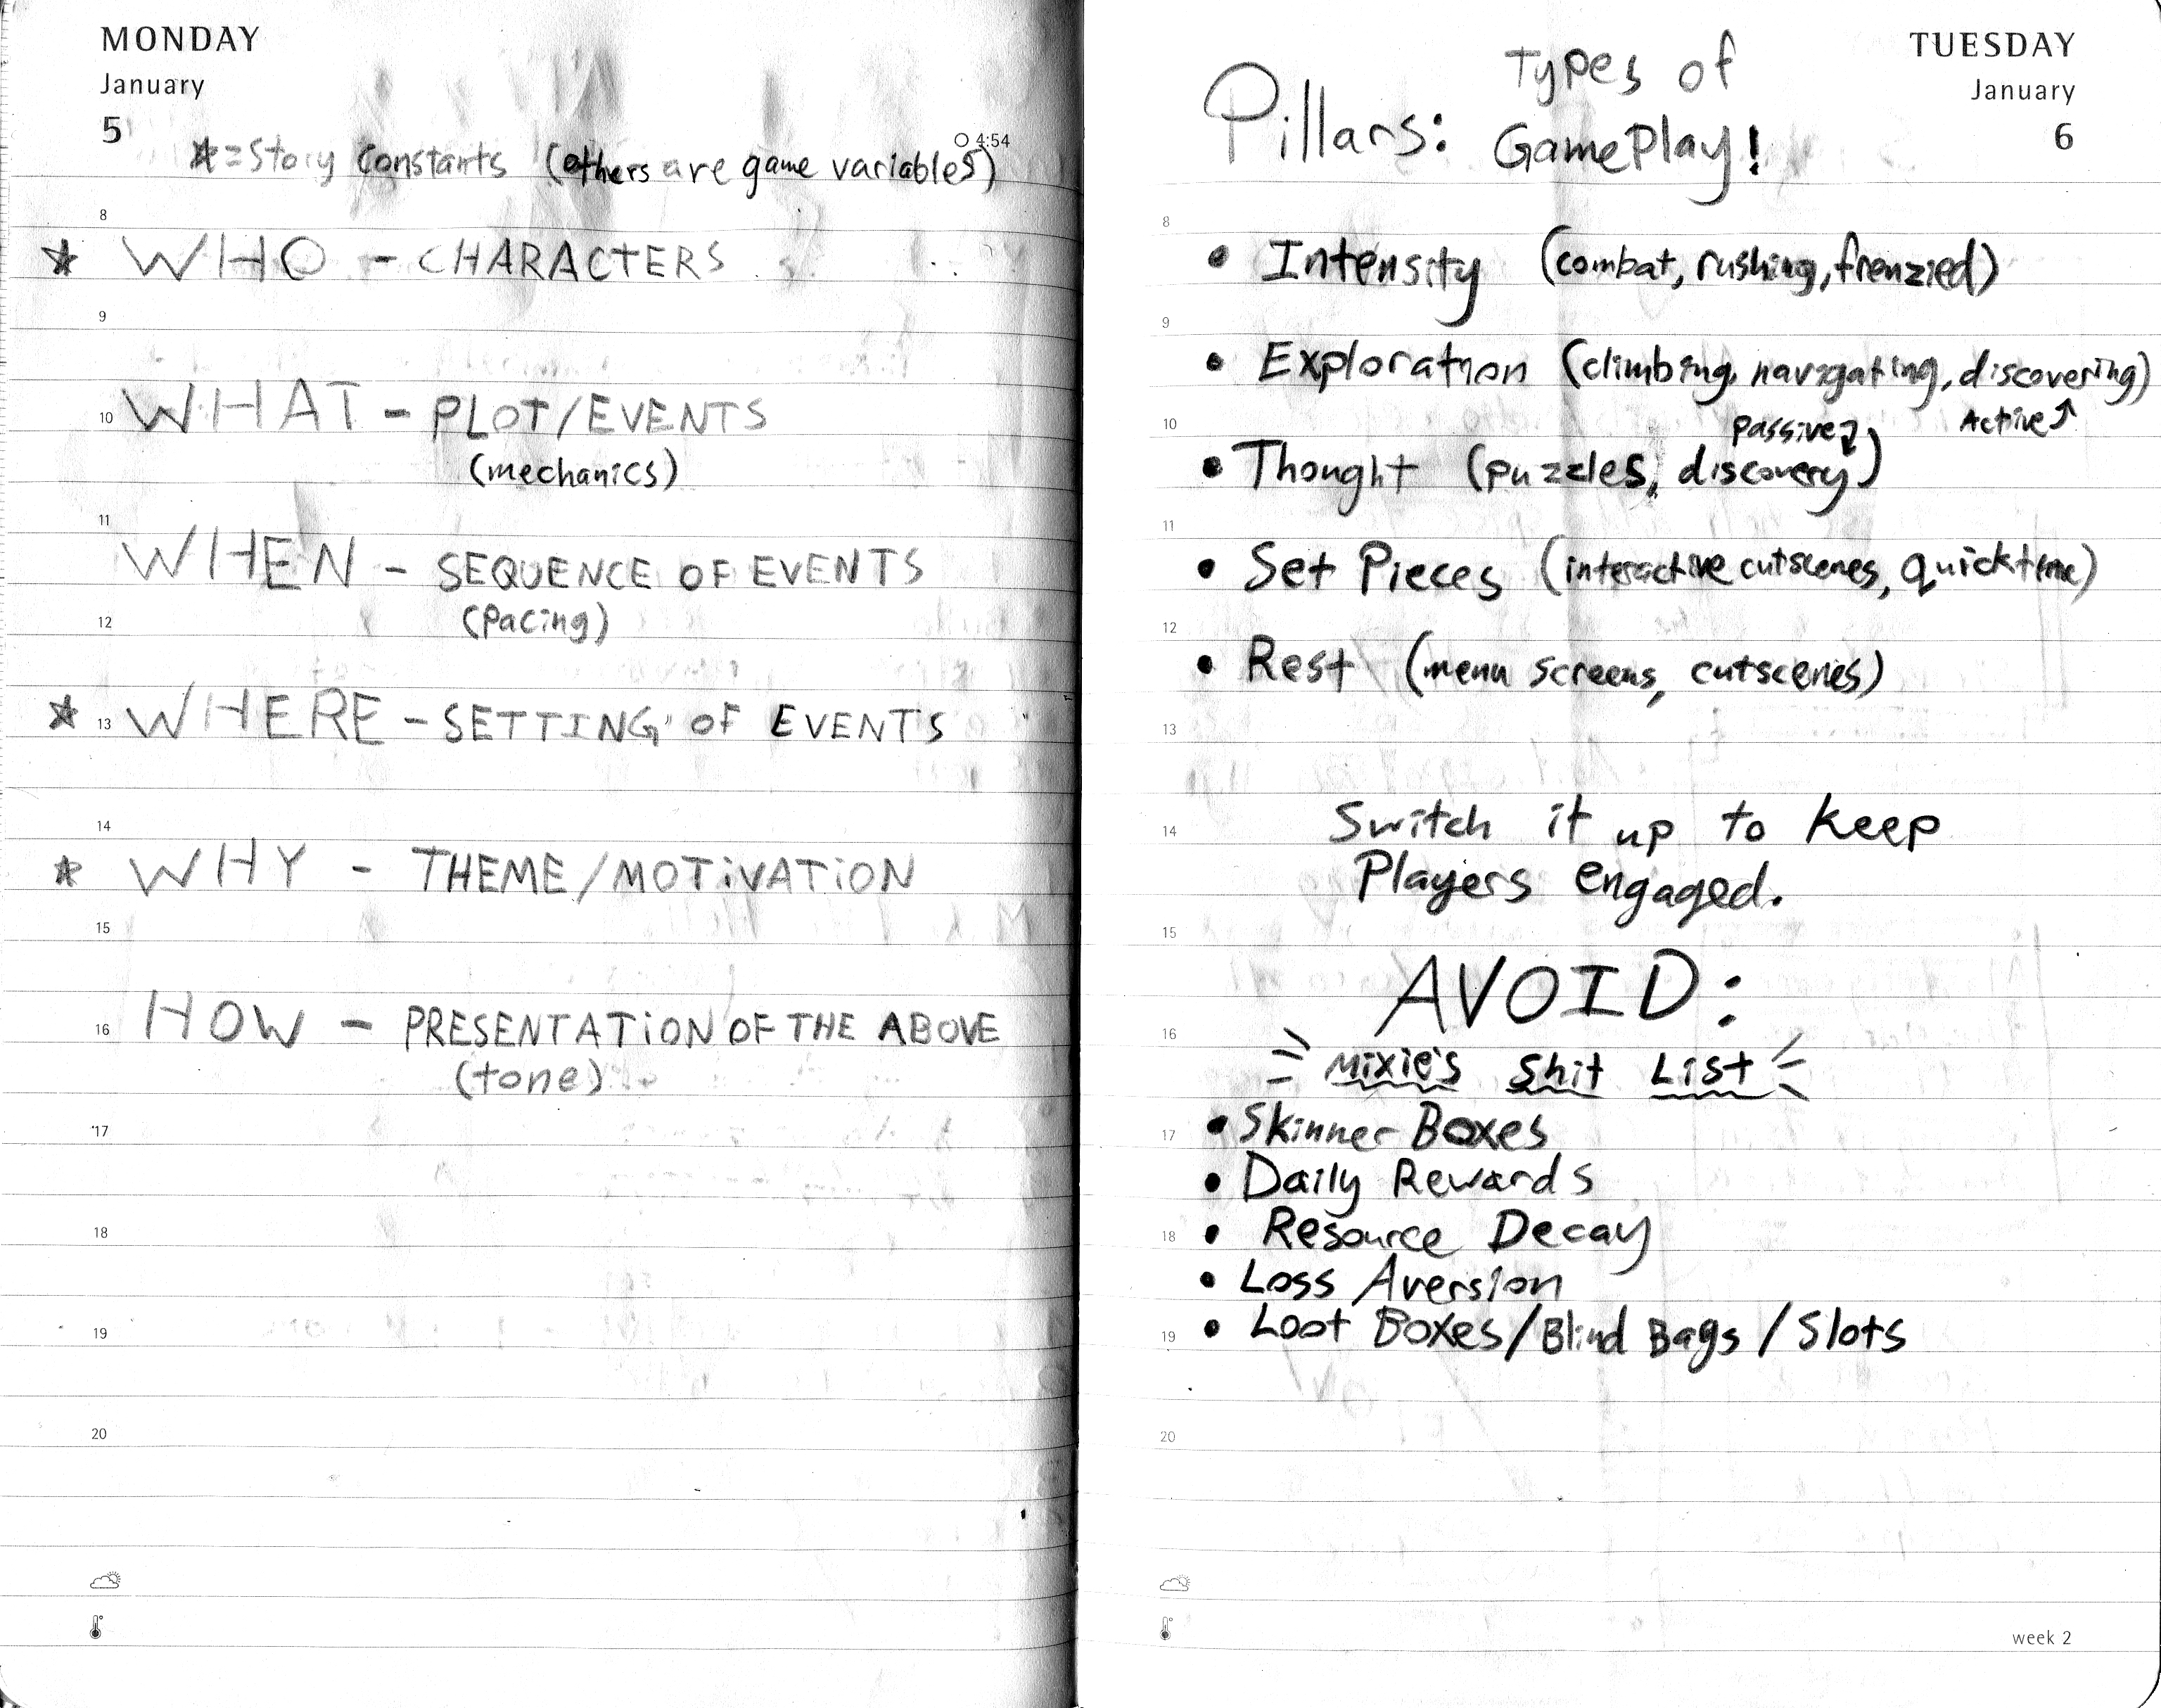 MONDAY
January
5
○ 4:54
☆ = Story Constants (others are game variables)
8
☆ WHO - CHARACTERS
9
10 WHAT - PLOT/EVENTS
(mechanics)
11
WHEN - SEQUENCE OF EVENTS
12 (Pacing)
☆ 13 WHERE - SETTING OF EVENTS
14
☆ WHY - THEME/MOTIVATION
15
16 HOW - PRESENTATION OF THE ABOVE
(tone)
17
18
19
20
TUESDAY
January
6
Pillars: Types of
GamePlay!
8
• Intensity (combat, rushing, frenzied)
9
• Exploration (climbing, navigating, discovering)
10 Passive Active
• Thought (puzzles, discovery)
11
• Set Pieces (interactive cutscenes, quicktime)
12
• Rest (menu screens, cutscenes)
13
14 Switch it up to keep
Players engaged.
15
AVOID:
16
Mixie's Shit List
17 • Skinner Boxes
• Daily Rewards
18 • Resource Decay
• Loss Aversion
19 • Loot Boxes/Blind Bags/Slots
20
week 2